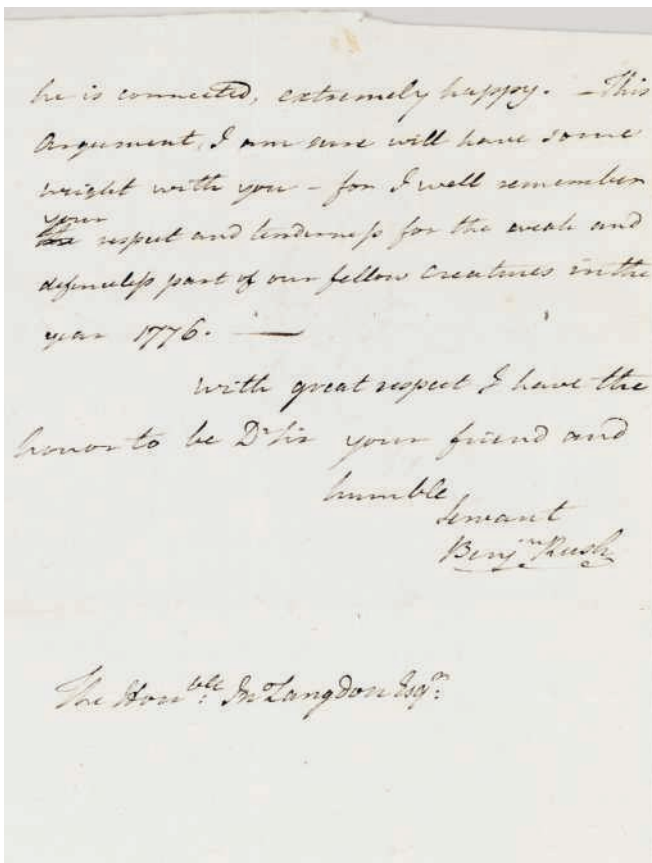 he is connected, extremely happy. – This
Argument, I am sure will have some
weight with you – for I well remember
your
the respect and tenderness for the weak and
defenceless part of our fellow Creatures in the
year 1776. —
with great respect I have the
honor to be Dr Sir your friend and
humble
Servant
Benjn Rush
The Honble: Jn Langdon Esqr: